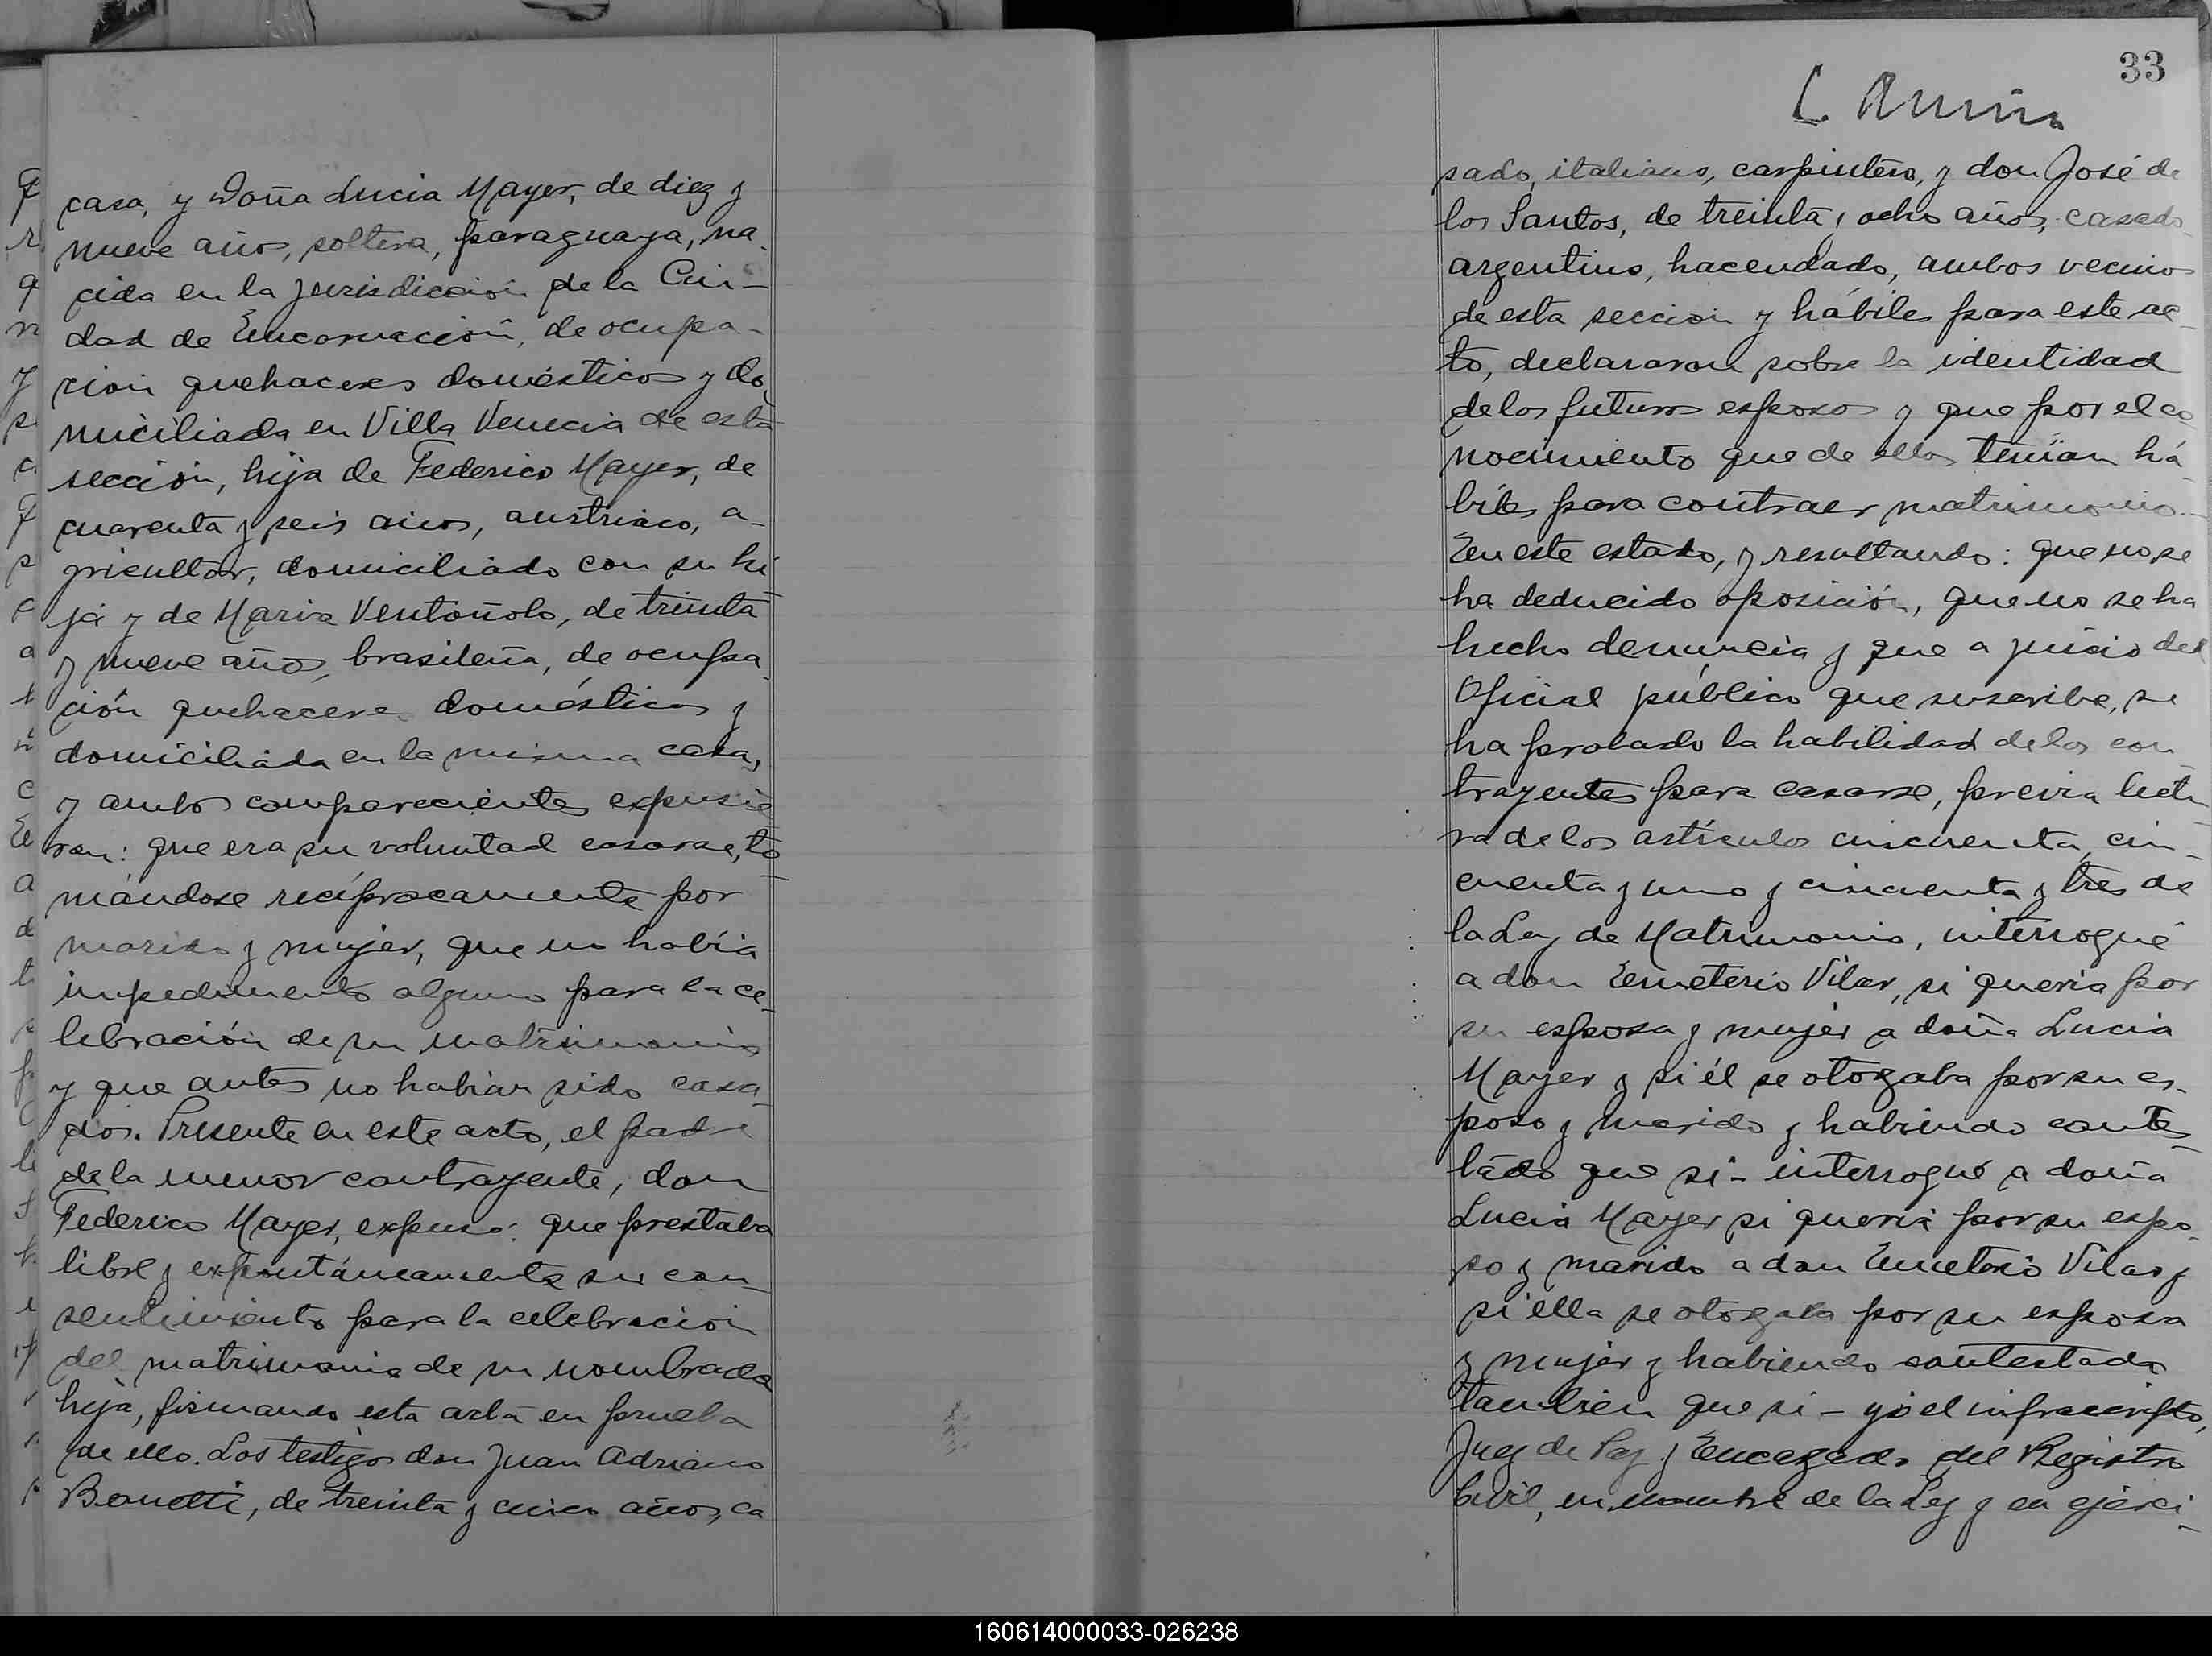 casa, y Doña Lucia Mayer, de diez y
nueve años, soltera, paraguaya, na-
cida en la jurisdiccion de la Ciu-
dad de Encarnación, de ocupa-
cion quehaceres domésticos y do
miciliada en Villa Venecia de esta
sección, hija de Federico Mayer, de
cuarenta y seis años, austriaco, a-
gricultor, domiciliado con su hi
ja y de Maria Ventoñolo, de treinta
y nueve años, brasileña, de ocupa
ción quehaceres domésticos y
domiciliada en la misma casa,
y ambos comparecientes expusie
ron: que era su voluntad casarse, to
mándose recíprocamente por
marido y mujer, que no había
impedimento alguno para la ce-
lebración de su matrimonio
y que antes no habian sido casa
dos. Presente en este acto, el padre
de la menor contrayente, don
Federico Mayer, expuso: que prestaba
libre y expontáneamente su con
sentimiento para la celebracion
del matrimonio de su nombrada
hija, firmando esta acta en prueba
de ello. Los testigos don Juan Adriano
Bonetti, de treinta y cinco años, ca
33
sado, italiano, carpintero, y don José de
los Santos, de treinta y ocho años, casado
argentino, hacendado, ambos vecinos
de esta seccion y hábiles para este ac-
to, declararon sobre la identidad
de los futuros esposos y que por el co
nocimiento que de ellos tenían há
biles para contraer matrimonio.-
En este estado, y resultando: que no se
ha deducido oposición, que no se ha
hecho denuncia y que a juicio del
Oficial público que suscribe, se
ha probado la habilidad de los con
trayentes para casarse, previa lectu
ra de los artículos cincuenta, cin-
cuenta y uno y cincuenta y tres de
la Ley de Matrimonio, interrogué
a don Emeterio Vilar, si queria por
su esposa y mujer a doña Lucia
Mayer y si él se otorgaba por su es-
poso y marido y habiendo contes
tado que si - interrogué a doña
Lucia Mayer si queria por su espo-
so y marido a don Emeterio Vilar y
si ella se otorgaba por su esposa
y mujer y habiendo contestado
tambien que si - yo el infrascripto,
Juez de Paz y Encargado del Registro
Civil, en nombre de la Ley y en ejerci-
160614000033-026238